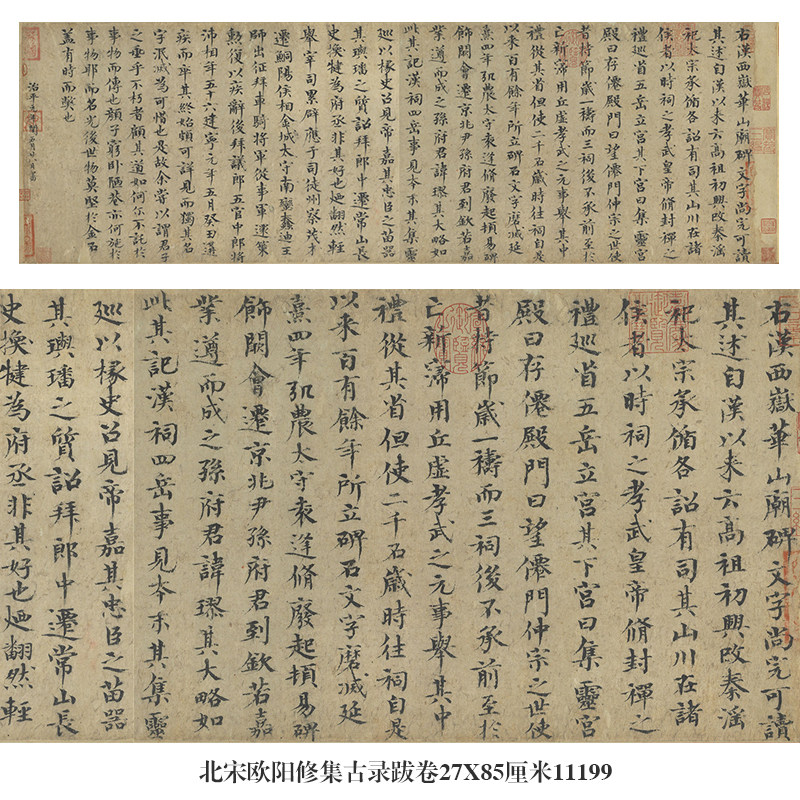 右漢西嶽華山廟碑文字尚完可讀
其述自漢以来云高祖初興改秦淫
祀太宗承循各詔有司其山川在諸
侯者以時祠之孝武皇帝脩封禪之
禮巡省五岳立宮其下宮曰集靈宮
殿曰存僊殿門曰望僊門仲宗之世使
者持節歲一禱而三祠後不承前至於
亡新寖用丘虛孝武之元事舉其中
禮從其省但使二千石歲時往祠自是
以来百有餘年所立碑石文字磨滅延
熹四年弘農太守袁逢脩廢起頓易碑
飾闕會遷京兆尹孫府君到欽若嘉
業遵而成之孫府君諱璆其大略如
此其記漢祠四岳事見本末其集靈
巡以掾史召見帝嘉其忠臣之苗器
其璵璠之質詔拜郎中遷常山長
史換犍為府丞非其好也廼翻然輕
舉宰司累辟應于司徒州察茂才
遷鮦陽侯相金城太守南蠻蠢迪王
師出征拜車騎將軍從事軍還策
勳復以疾辭後拜議郎五官中郎將
沛相年五十六建寧元年五月癸丑遘
疾而卒其終始頗可詳見而獨其名
字泯滅為可惜也是故余嘗以謂君子
之垂乎不朽者顧其道如何尔不託於
事物而傳也顏子窮卧陋巷亦何施於
事物耶而名光後世物莫堅於金石
蓋有時而弊也
治平元年閏
右漢西嶽華山廟碑文字尚完可讀
其述自漢以来云高祖初興改秦淫
祀太宗承循各詔有司其山川在諸
侯者以時祠之孝武皇帝脩封禪之
禮巡省五岳立宮其下宮曰集靈宮
殿曰存僊殿門曰望僊門仲宗之世使
者持節歲一禱而三祠後不承前至於
亡新寖用丘虛孝武之元事舉其中
禮從其省但使二千石歲時往祠自是
以来百有餘年所立碑石文字磨滅延
熹四年弘農太守袁逢脩廢起頓易碑
飾闕會遷京兆尹孫府君到欽若嘉
業遵而成之孫府君諱璆其大略如
此其記漢祠四岳事見本末其集靈
巡以掾史召見帝嘉其忠臣之苗器
其璵璠之質詔拜郎中遷常山長
史換犍為府丞非其好也廼翻然輕
北宋欧阳修集古录跋卷27X85厘米11199